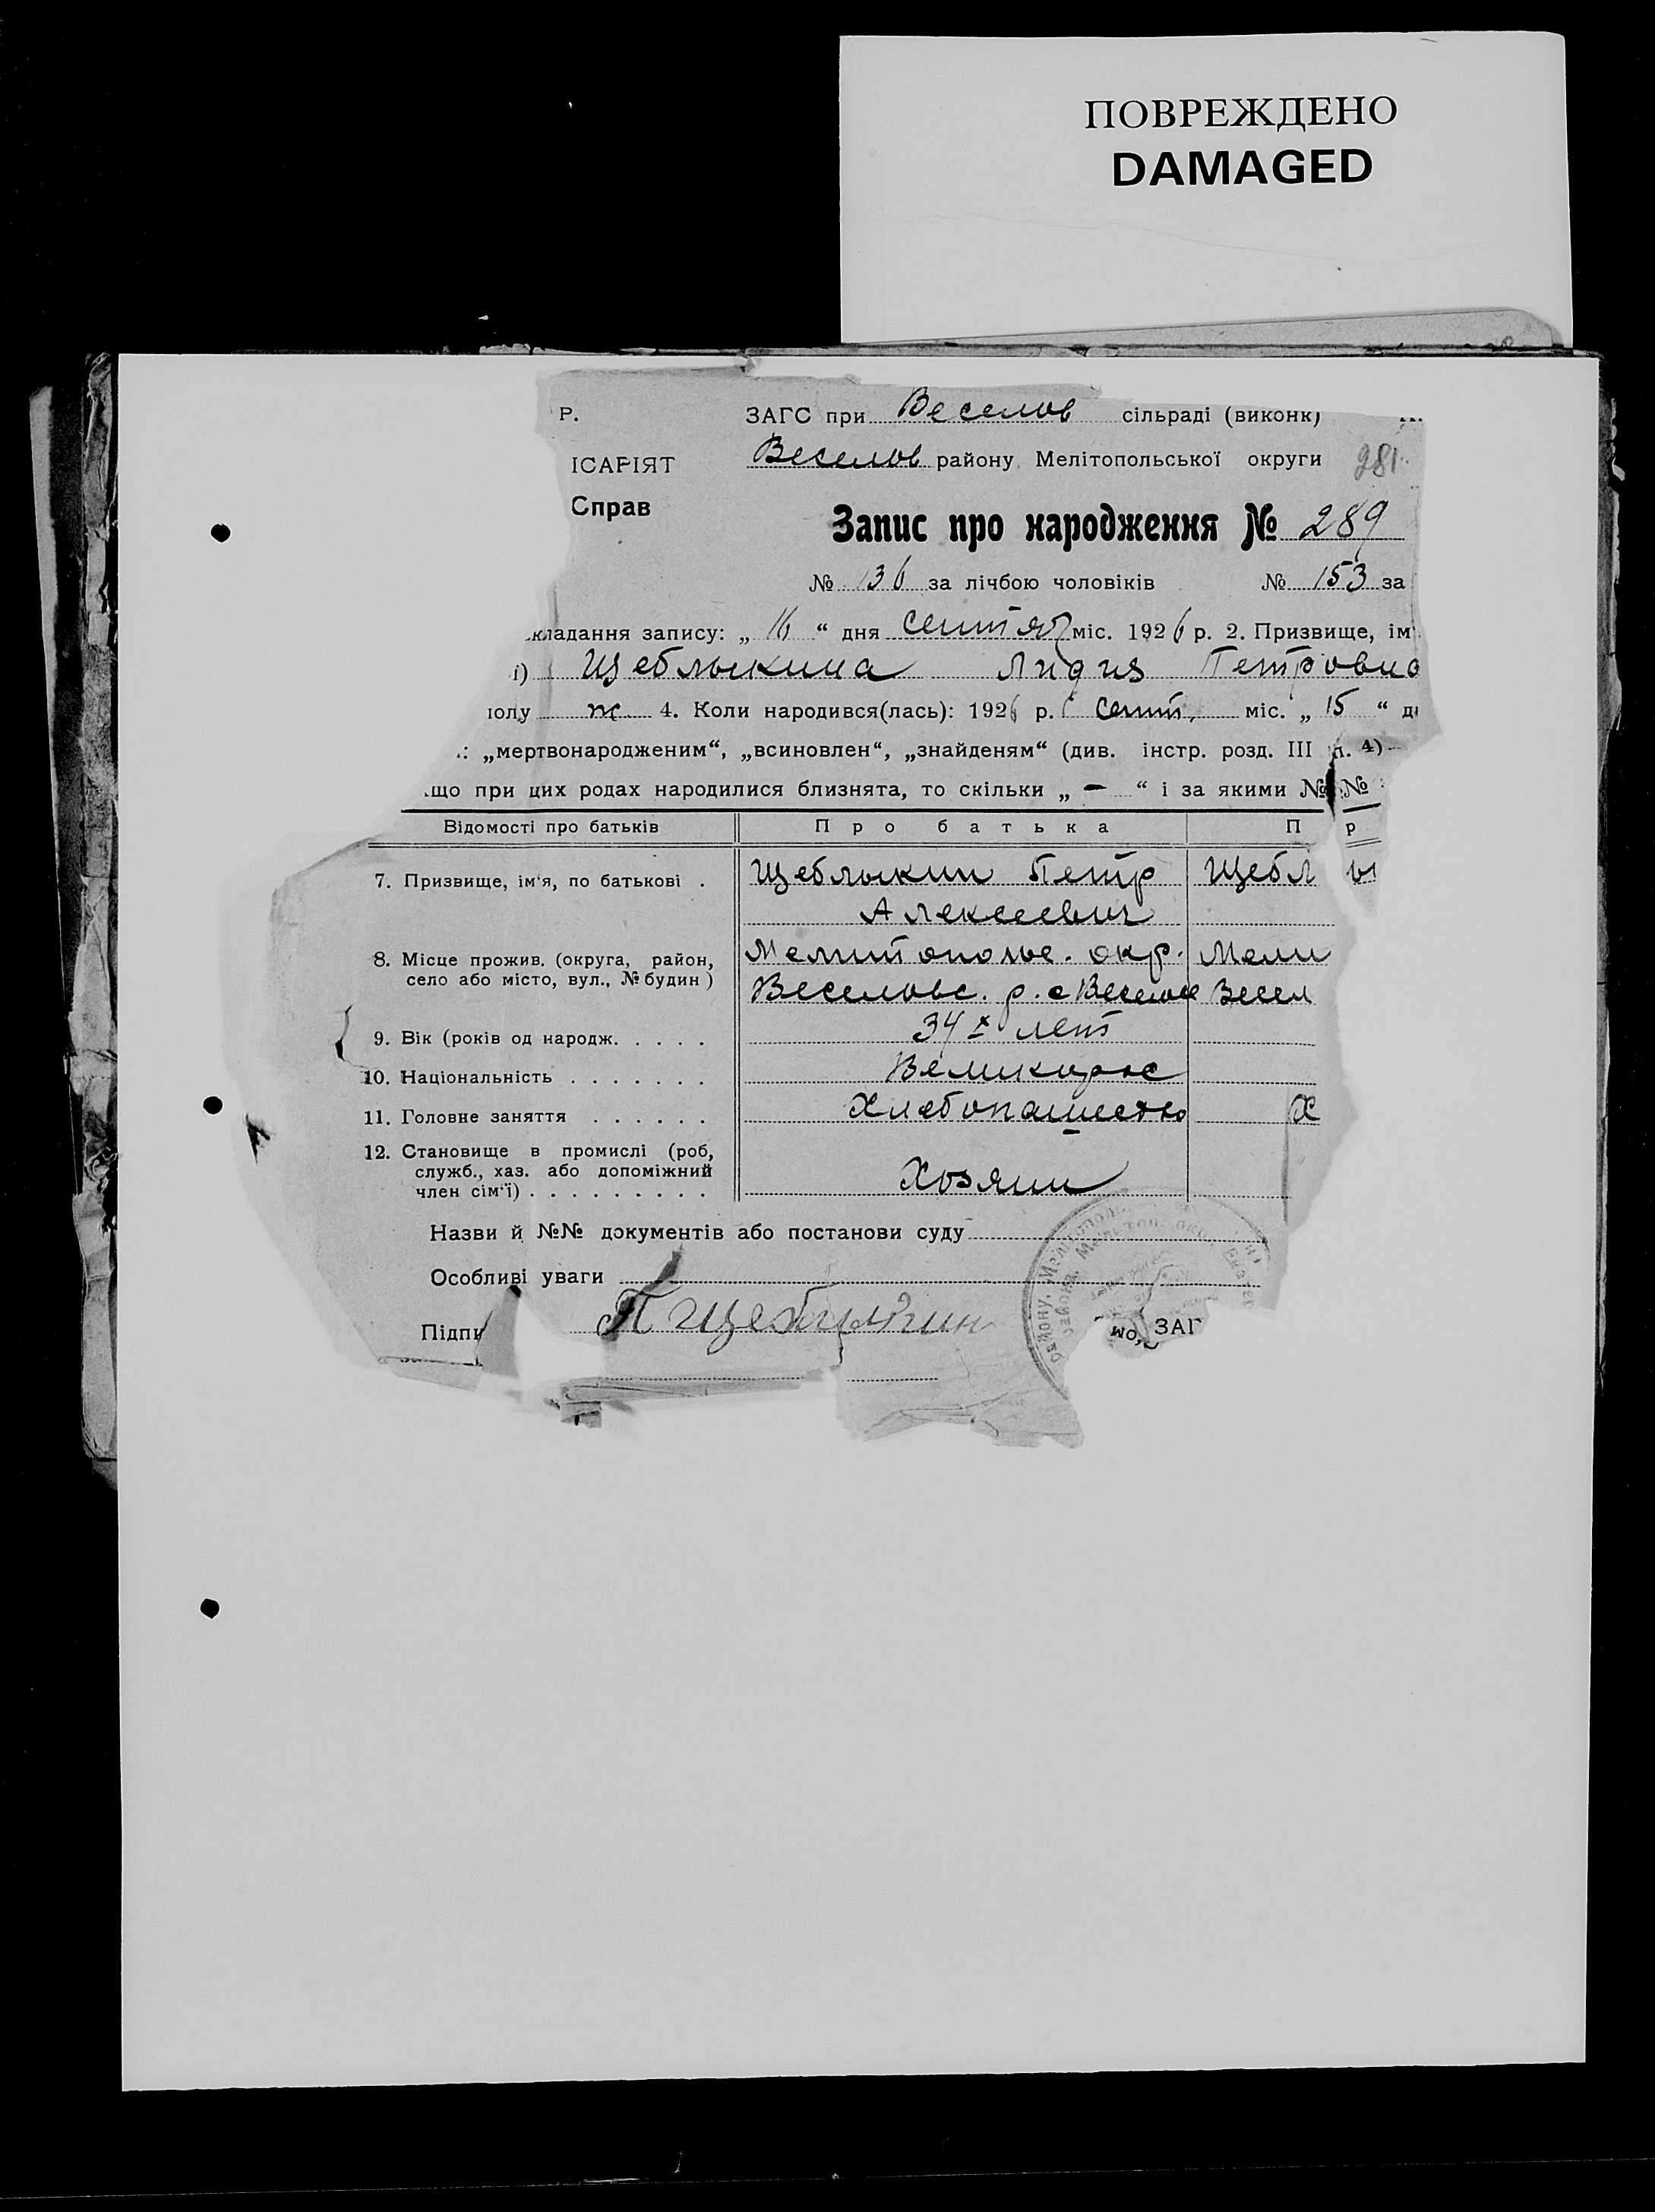 ПОВРЕЖДЕНО
DAMAGED
Р. ЗАГС при Веселов сільраді (виконк)
ІСАРІЯТ Веселов району Мелітопольської округи 281
Справ
Запис про народження № 289
№ 136 за лічбою чоловіків № 153 за
кладання запису: „ 16 “ дня сентяб міс. 1926 р. 2. Призвище, ім'
і) Щеблыкина Лидия Петровна
полу ж. 4. Коли народився(лась): 1926 р. сент. міс. „ 15 “ д
: „мертвонародженим“, „всиновлен“, „знайденям“ (див. інстр. розд. III п. 4)
що при цих родах народилися близнята, то скільки „ — “ і за якими № №
Відомості про батьків Про батька П р
7. Призвище, ім'я, по батькові . Щеблыкин Петр Щебл ы
Алексеевич
8. Місце прожив. (округа, район, Мелитопольс. окр. Мели
село або місто, вул., № будин ) Веселовс. р. с Веселое Весел
9. Вік (років од народж. . . . . 34х лет
10. Національність . . . . . . . Великорос
11. Головне заняття . . . . . . Хлебопашество Х
12. Становище в промислі (роб,
служб., хаз. або допоміжний
член сім'ї) . . . . . . . . . Хозяин
Назви й №№ документів або постанови суду
Особливі уваги
Підпи П Щеблыкин ЗАГ